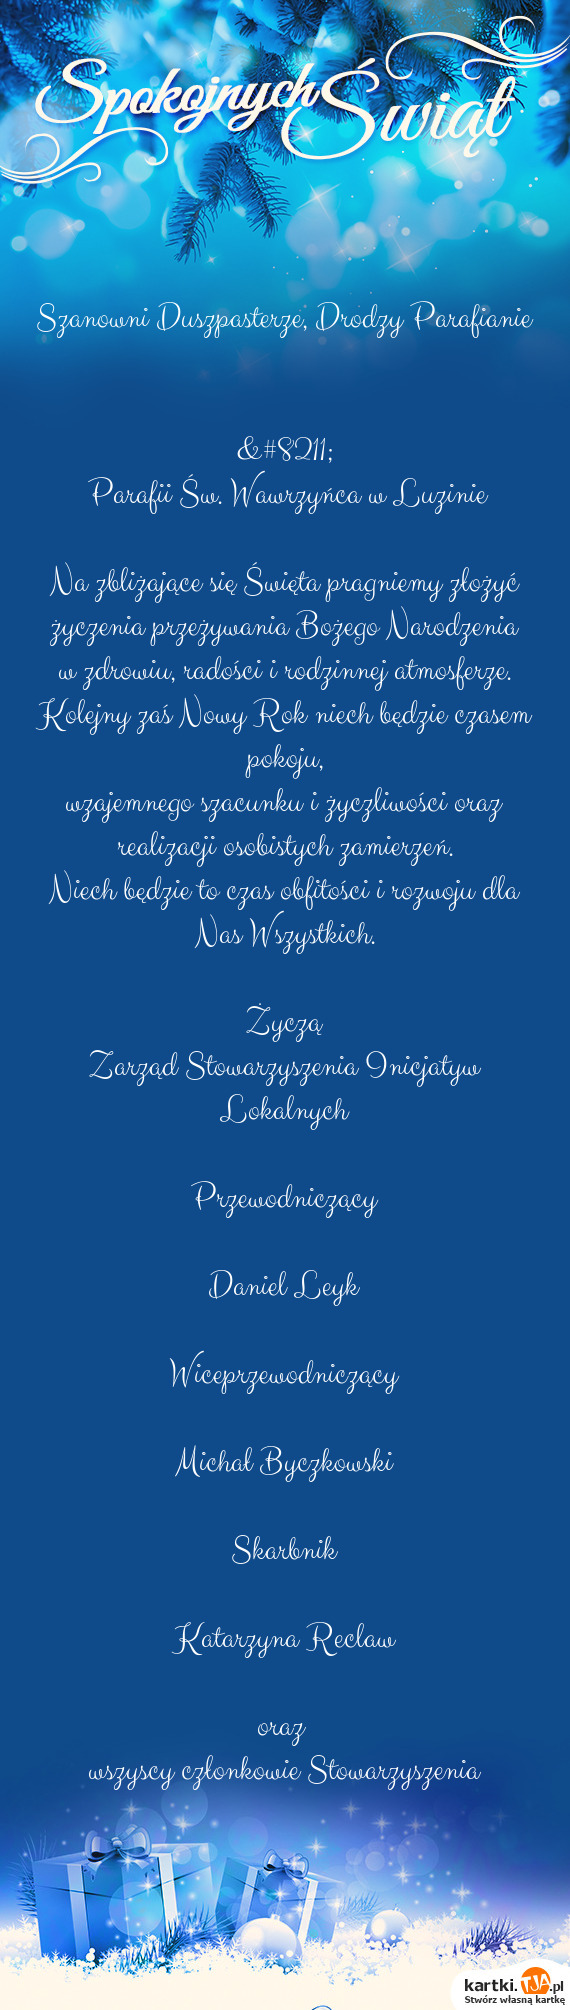 Spokojnych Świąt
Szanowni Duszpasterze, Drodzy Parafianie
&#8211;
Parafii Św. Wawrzyńca w Luzinie
Na zbliżające się Święta pragniemy złożyć
życzenia przeżywania Bożego Narodzenia
w zdrowiu, radości i rodzinnej atmosferze.
Kolejny zaś Nowy Rok niech będzie czasem
pokoju,
wzajemnego szacunku i życzliwości oraz
realizacji osobistych zamierzeń.
Niech będzie to czas obfitości i rozwoju dla
Nas Wszystkich.
Życzą
Zarząd Stowarzyszenia Inicjatyw
Lokalnych
Przewodniczący
Daniel Leyk
Wiceprzewodniczący
Michał Byczkowski
Skarbnik
Katarzyna Reclaw
oraz
wszyscy członkowie Stowarzyszenia
kartki.TJA.pl
Stwórz własną kartkę